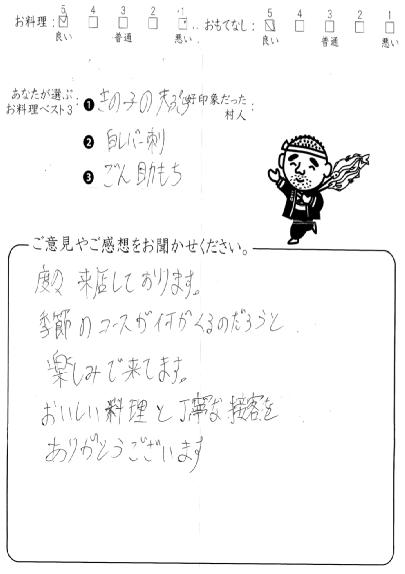 5 4 3 2 1 5 4 3 2 1
お料理: おもてなし:
良い 普通 悪い 良い 普通 悪い
あなたが選ぶ お料理ベスト3:
好印象だった 村人:
❶ きの子の天ぷら
❷ 白レバー刺
❸ ごん助もち
ご意見やご感想をお聞かせください。
度々来店しております。
季節のコースが何がくるのだろうと
楽しみで来てます。
おいしい料理と丁寧な接客を
ありがとうございます